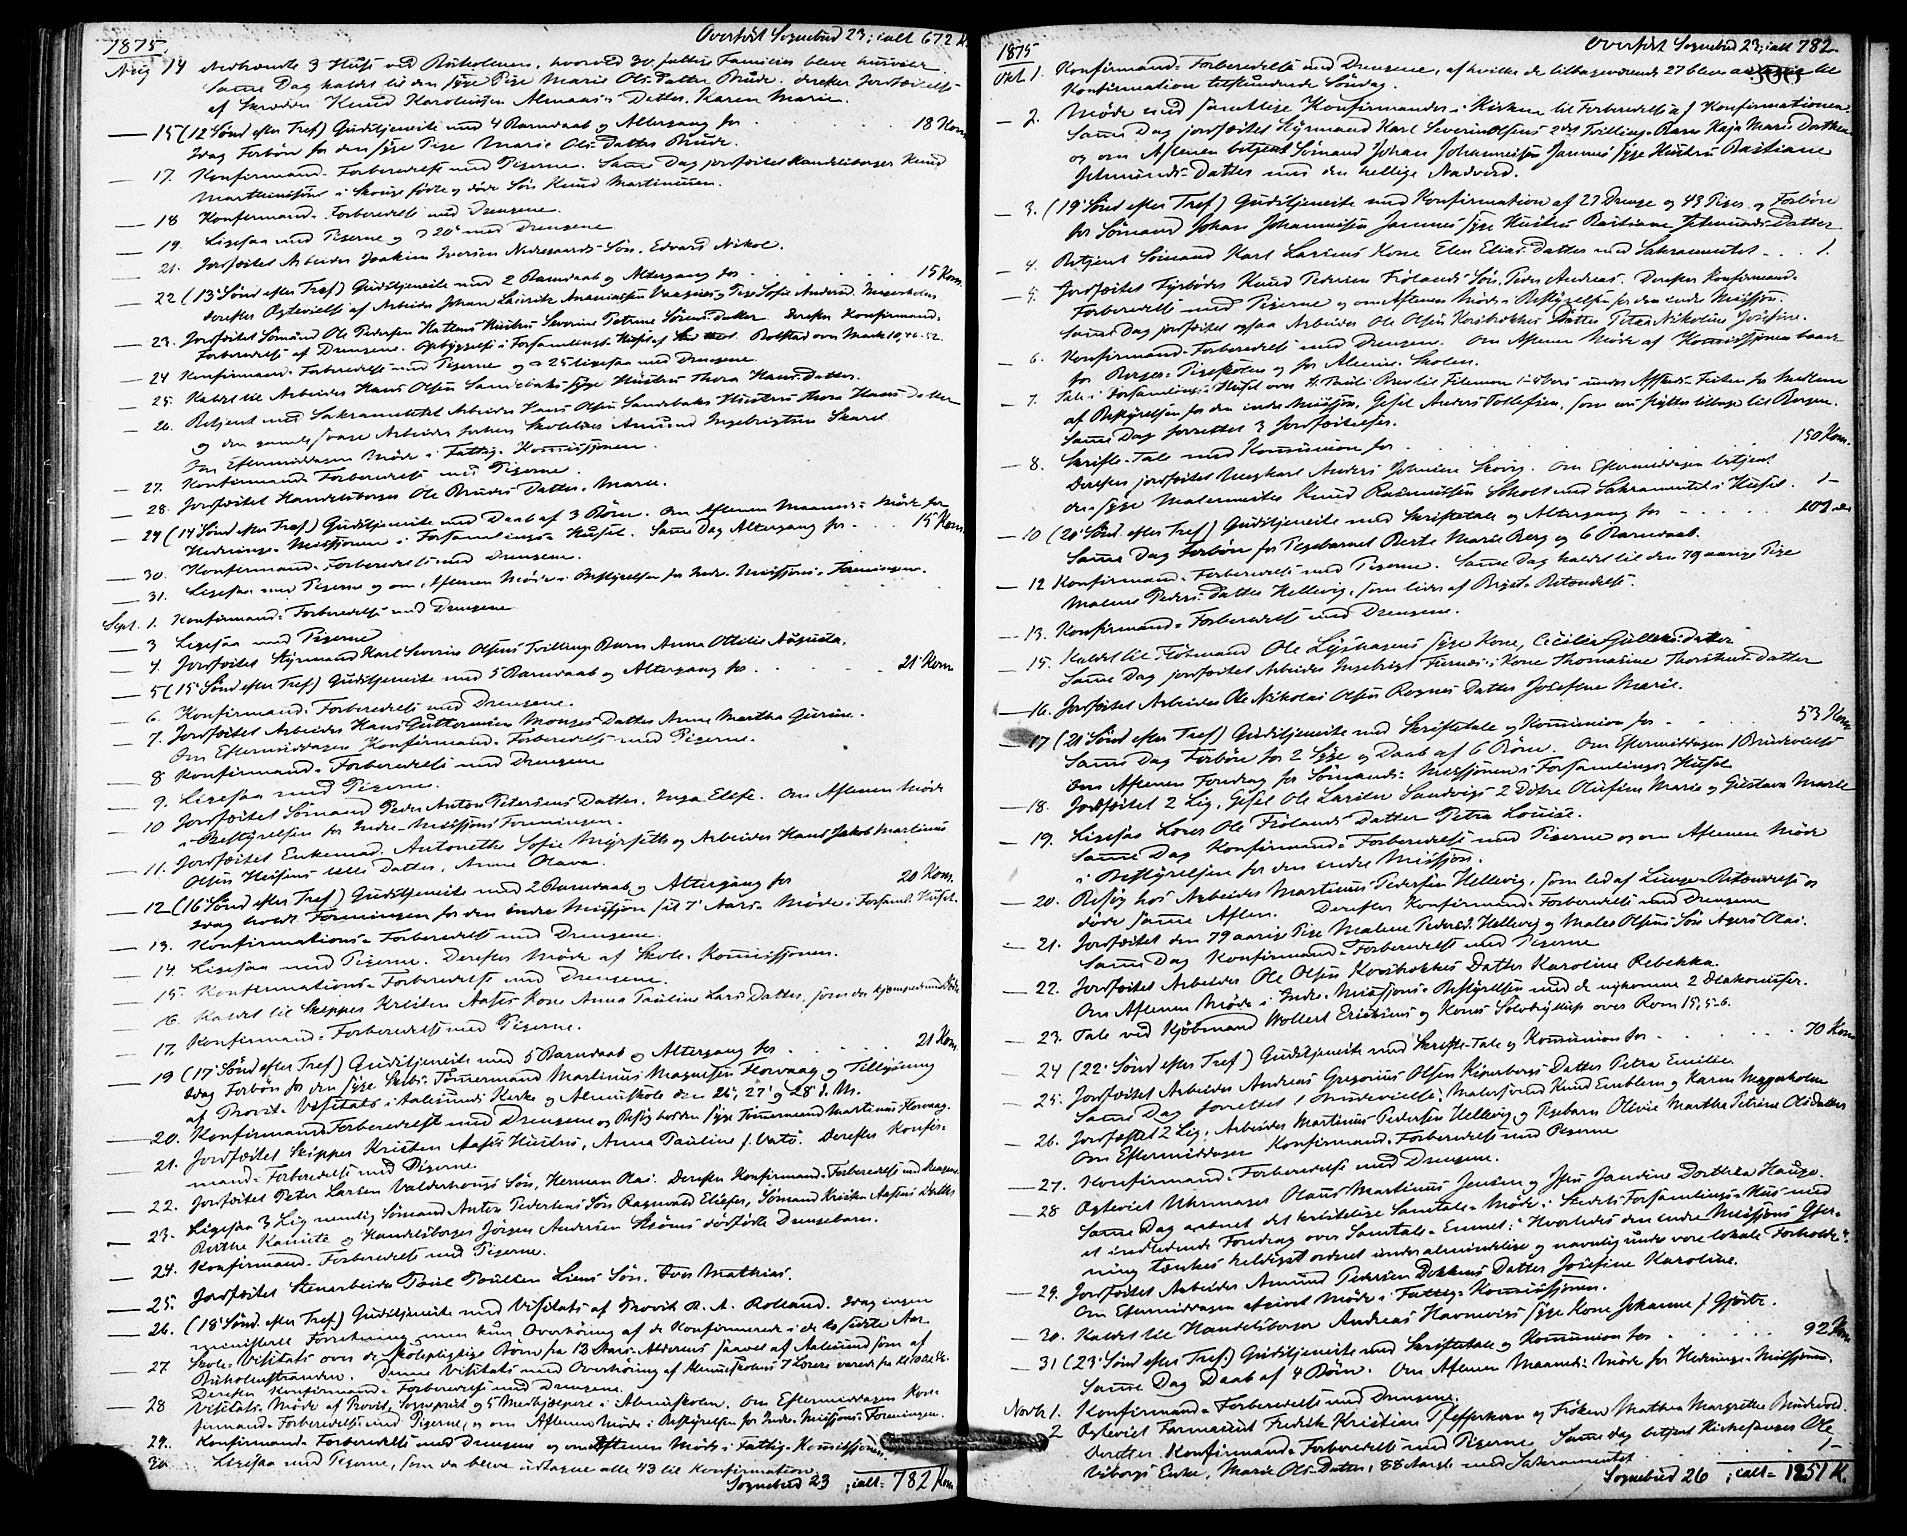 Overført Sognebud 23; ialt 672 K.
1875.
Aug 14 Nedbrændte 3 Huse ved Buholmen, hvorved 30 fattige Familier bleve husvilde.
Samme Dag kaldt til den syge Pige Marie Ols Datter Brude. derefter Jordfæstelse
af Skrædder Knud Karoliussen Almaas's Datter, Karen Marie.
— 15 (12 Sønd efter Tref) Gudstjeneste med 4 Barnedaab og Altergang for . . . 18 Kom
Idag Forbøn for den syge Pige Marie Ols Datter Brude.
— 17. Konfirmand-Forberedelse med Pigerne. Samme Dag jordfæstet Handelsborger Knud
Marthinussens i Skovgs fødte og døde Søn Knud Martinus.
— 18 Konfirmand-Forberedelse med Drengene.
— 19. Ligesaa med Pigerne og d 20 med Drengene
— 21. Jordfæstet Arbeider Joakim Iversen Nedregaards Søn, Edvard Nikol.
— 22 (13 Sønd efter Tref) Gudstjeneste med 2 Barnedaab og Altergang for . . . 15 Kom.
derefter Ægtevielse af Arbeider Johan
— 23. Jordfæstet Sømand Ole Pedersen Hustru Severine Petrine Sørens Datter. Derefter Konfirmand-
Forberedelse af Drengene. Opbyggelse i Forsamlings-Huset af over Mark 10, 46-52.
— 24 Konfirmand-Forberedelse med Pigerne og d 25 ligesaa med Drengene.
— 25. Kaldet til Arbeider Hans Olsen Sandsbaks syge Hustru Thora Hans Datter.
— 26. Betjent med Sakramentet Arbeider Hans Olsen Sandsbaks Hustru Thora Hans Datter
og den gamle svage Arbeider forhen Skolelærer Amund Ingebrigtsen Skarel
Om Eftermiddagen Møde i Fattig-Kommissjonen.
— 27. Konfirmand-Forberedelse med Pigerne.
— 28. Jordfæstet Handelsborger Ole Brudes Datter, Marie.
— 29 (14 Sønd efter Tref) Gudstjeneste med Daab af 3 Børn. Om Aftenen Maaneds-Møde for
Hednings-Missjonen i Forsamlings-Huset. Samme Dag Altergang for . . . 15 Kom
— 30. Konfirmand-Forberedelse med Drengene.
— 31. Ligesaa med Pigerne og om Aftenen Møde i Bestyrelsen for Indre-Missjons-Foreningen.
Sept. 1. Konfirmand-Forberedelse med Drengene
— 3 Ligesaa med Pigerne
— 4. Jordfæstet Styrmand Karl Severin Olsens Tvillinge Barn Anna Ottilie Augusta.
— 5 (15 Sønd efter Tref) Gudstjeneste med 5 Barnedaab og Altergang for . . . 21 Kom
— 6. Konfirmand-Forberedelse med Drengene.
— 7. Jordfæstet Arbeider Hans Guttormsen Monges Datter Anne Martha Gurine.
Om Eftermiddagen Konfirmand-Forberedelse med Pigerne.
— 8 Konfirmand-Forberedelse med Drengene
— 9. Ligesaa med Pigerne.
— 10 Jordfæstet Sømand Peder Anton Petersens Datter, Inga Elise. Om Aftenen Møde
i Bestyrelsen for Indre-Missjons Foreningen.
— 11. Jordfæstet Enkemad. Antonette Sofie Myrseth og Arbeider Hans Jakob Martinus
Olsen Datter, Anne Olava.
— 12 (16 Sønd efter Tref) Gudstjeneste med 2 Barnedaab og Altergang for 20 Kom.
Idag holdt Foreningen for den indre Missjon sit 7 Aars-Møde i Forsaml. Huset.
— 13. Konfirmations-Forberedelse med Drengene.
— 14. Ligesaa med Pigerne. Derefter Møde af Skole-Kommissjonen.
— 15. Konfirmations-Forberedelse med Drengene.
— 16. Kaldet til Skipper Kristen Aases Kone Anna Pauline Lars Datter, som da kjæmpede med Døden
— 17. Konfirmand-Forberedelse med Pigerne.
— 19 (17 Sønd efter Tref) Gudstjeneste med 5 Barnedaab og Altergang for . . . 21 Kom.
Idag Forbøn for den syge Skibs-Tømmermand Martinus Magnussen Horvaag og Tillysning
af Provst-Visitats i Aalesunds Kirke og Almueskole den 26, 27 og 28 d. M.
— 20. Konfirmand-Forberedelse med Drengene og Besøg hos den syge Tømmermand Martinus Horvaag.
— 21. Jordfæstet Skipper Kristen Aases Hustru, Anna Pauline f. Vatø. Derefter Konfir-
mand-Forberedelse med Pigerne.
— 22. Jordfæstet Peter Larsen Valderhougs Søn, Herman Olai. Derefter Konfirmand-Forberedelse med Drengene.
— 23. Ligesaa 3 Lig nemlig Sømand Anton Pedersens Søn Ragnvald Eliesar, Sømand Kristen Aases Datter
Berthe Kamitte og Handelsborger Jørgen Andersen Strøms dødfødte Drengebarn.
— 24. Konfirmand-Forberedelse med Pigerne.
— 25. Jordfæstet Stenarbeider Poul Poulsen Liens Søn, Iver Mathias.
— 26. (18 Sønd. efter Tref) Gudstjeneste med Visitats af Provst R. A. Rolland. Idag ingen
ministeriel Forretning men kun Overhøring af de Konfirmerede i de to sidste Aar.
— 27 Skole-Visitats over de skolepligtige Børn fra 13 Aars-Alderen saavel af Aalesund som af
Buholmstranden. Denne Visitats med Overhøring af Almueskolens 7 Lærere varede fra kl 10 til 4.
Derefter Konfirmand-Forberedelse med Drengene.
— 28 Visitats-Møde af Provst, Sognepræst og 5 Medhjælpere i Almueskolen. Om Eftermiddagen Kon-
firmand-Forberedelse med Pigerne, og om Aftenen Møde i Bestyrelsen for Indre-Missjons Foreningen.
— 29. Konfirmand-Forberedelse med Drengene og om Aftenen Møde i Fattig-Kommissjonen.
30 Ligesaa med Pigerne, som da bleve udtagne alle 43 til Konfirmation.
Sognebud 23 ; ialt = 782 Kom
Overført Sognebud 23; ialt 782.
306
1875
Okt 1. Konfirmand-Forberedelse med Drengene, af hvilke de tilbageværende 27 bleve antagne til
Konfirmation tilstundende Søndag.
— 2. Møde med samtlige Konfirmander i Kirken til Forberedelse af Konfirmationen.
Samme Dag jordfæstet Styrmand Karl Severin Olsens 2det Tvillinge-Barn Kaja Marie Dorthea
og om Aftenen betjent Sømand Johan Johannessen Jannes syge Hustru Bastiane
Jetmunds-Datter med den hellige Nadverd.
— 3. (19 Sønd efter Tref) Gudstjeneste med Konfirmation af 27 Drenge og 43 Piger og Forbøn
for Sømand Johan Johannessen Jannes syge Hustru Bastiane Jetmunds-Datter
— 4. Betjent Sømand Karl Larsens Kone Elen Elias Datter med Sakramentet . . . 1.
— 5. Jordfæstet Fyrbøder Knud Pedersen Frølands Søn, Peder Andreas. Derefter Konfirmand-
Forberedelse med Pigerne og om Aftenen Møde i Bestyrelsen for den indre Missjon.
Samme Dag jordfæstet ogsaa Arbeider Ole Olsen Korsbakkes Datter Petra Nikoline Josefine.
— 6. Konfirmand-Forberedelse med Drengene. Om Aftenen Møde af Kommissjonen baade
for Borger-Pigeskolen og for Almue-Skolen.
— 7. Tale i Forsamlings-Huset over St. Pauli Brev til Filemon 1-4 Vers under Afskeds-Festen for Medlem
af Bestyrelsen for den indre Missjon, Gesel Anders Tollefsen, som nu flytter tilbage til Bergen.
Samme Dag forrettet 3 Jordfæstelser.
— 8. Skrifte-Tale med Kommunion for . . . 150 Kom.
Derefter jordfæstet Ungkarl Anders Johnsen Skovg. Om Eftermiddagen betjent
den syge Malermester Knud Rasmussen Stholt med Sakramentet i Huset. 1-
— 10 (20 Sønd. efter Tref) Gudstjeneste med Skriftetale og Altergang for . . . 102
Samme Dag Forbøn for Pigebarnet Berte Marie Berg og 6 Barnedaab.
— 12 Konfirmand-Forberedelse med Pigerne. Samme Dag kaldt til den 79 aarige Pige
Malene Peders-Datter Hellevig, som lider af Bryst-Betændelse.
— 13. Konfirmand-Forberedelse med Drengene.
— 15. Kaldet til Fløtmand Ole Lyshagens syge Kone, Cecilie
Samme Dag jordfæstet Arbeider Ingebrigt Furnes's Kone Thomasine Thorstens-Datter
— 16. Jordfæstet Arbeider Ole Nikolai Olsen Rognes Datter Josefine Marie.
— 17 (21 Sønd efter Tref) Gudstjeneste med Skriftetale og Kommunion for . . . 53 Kom
Samme Dag Forbøn for 2 Syge og Daab af 6 Børn. Om Eftermiddagen 1 Brudevielse
Om Aftenen Foredrag for Sømands-Missjonen i Forsamlings-Huset
— 18. Jordfæstet 2 Lig, Gesel Ole Larsen Sandvigs 2 Døtre Olufine Marie og Gustava Marie
— 19. Ligesaa Loses Ole Frølands Datter Petra Louise.
Samme Dag Konfirmand-Forberedelse med Pigerne og om Aftenen Møde
i Bestyrelsen for den indre Missjon.
— 20. Besøg hos Arbeider Martinus Pedersen Hellevig, som led af Lunge-Betændelse og
døde samme Aften. Derefter Konfirmand-Forberedelse med Drengene
— 21. Jordfæstet den 79 aarige Pige Malene Pedersd. Hellevig og Males Olsens Søn Olai.
Samme Dag Konfirmand-Forberedelse med Pigerne
— 22. Jordfæstet Arbeider Ole Olsen Korsbakkes Datter Karoline Rebekka.
Om Aftenen Møde i Indre-Missjons-Bestyrelsen med de nykomne 2 Diakonisser.
— 23. Tale ved Kjøbmand Wollert Ericksens og Kones Sølvbryllup over Rom 15, 5-6.
— 24 (22 Sønd efter Tref) Gudstjeneste med Skrifte-Tale og Kommunion for . . . 70 Kom
— 25. Jordfæstet Arbeider Andreas Gregorius Olsen Kipenbergs Datter Petra Emilie
Samme Dag forrettet 1 Brudevielse, Malersvend Knud Emblem og Karen Magerholm
— 26. Jordfæstet 2 Lig, Arbeider Martinus Pedersen Hellevig og Pigebarn Olivie Martha Petrine Ols Datter
Om Eftermiddagen Konfirmand-Forberedelse med Pigerne
— 27. Konfirmand-Forberedelse med Drengene.
— 28 Ægteviet Uhrmager Olaus Martinus Jensen og Jfru Jandine Dorthea Hauge.
Samme Dag aabnet det kristelige Samtale-Møde i Stedets Forsamlings-Hus med
et indledende Foredrag over Samtale-Emnet: "Hvorledes den indre Missjons Gjer-
ning tænkes heldigst ordnet under almindelige og navnlig under vore lokale Forholde".
— 29. Jordfæstet Arbeider Amund Pedersen Dokkens Datter Josefine Karoline.
Om Eftermiddagen afgivet Møde i Fattig-Kommissjonen.
— 30. Kaldet til Handelsborger Andreas Havnevigs syge Kone Johanne f. Gjørtz.
— 31 (23 Sønd efter Tref.) Gudstjeneste med Skriftetale og Kommunion for . . . 92 Kom
Samme Dag Daab af 4 Børn. Om Aftenen Maaneds-Møde for Hednings-Missjonen.
Novbr 1. Konfirmand-Forberedelse med Drengene.
— 2 Ægteviet Farmaceut Fredrik Kristian Pfefferkorn og Frøken Mathea Margrethe Bindevold.
Derefter Konfirmand-Forberedelse med Pigerne. Samme Dag betjent Kirkesanger Ole
Viborgs Enke, Marie Ols-Datter, 88 Aargl. med Sakramentet 1-
Sognebud 26 ; ialt = 1251 K.